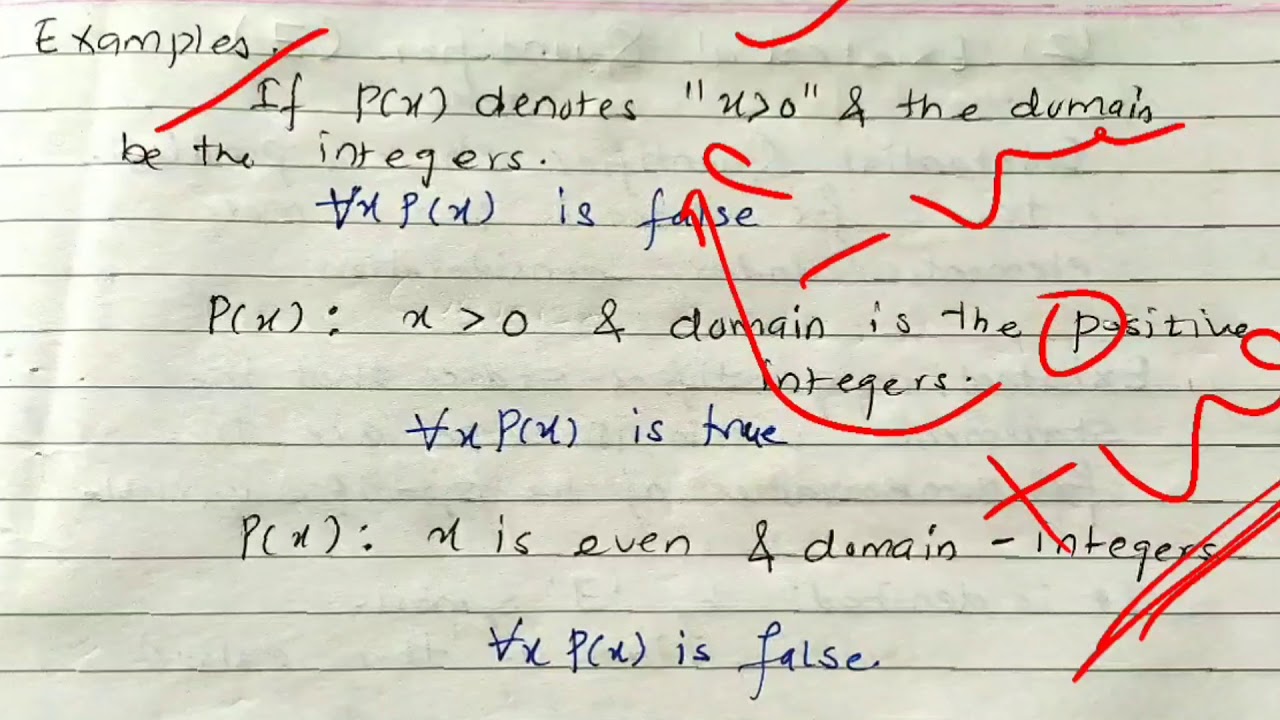 Examples.
If P(x) denotes "x>0" & the domain
be the integers.
∀x P(x) is false
P(x): x > 0 & domain is the positive
integers.
∀x P(x) is true
P(x): x is even & domain - integers
∀x P(x) is false.